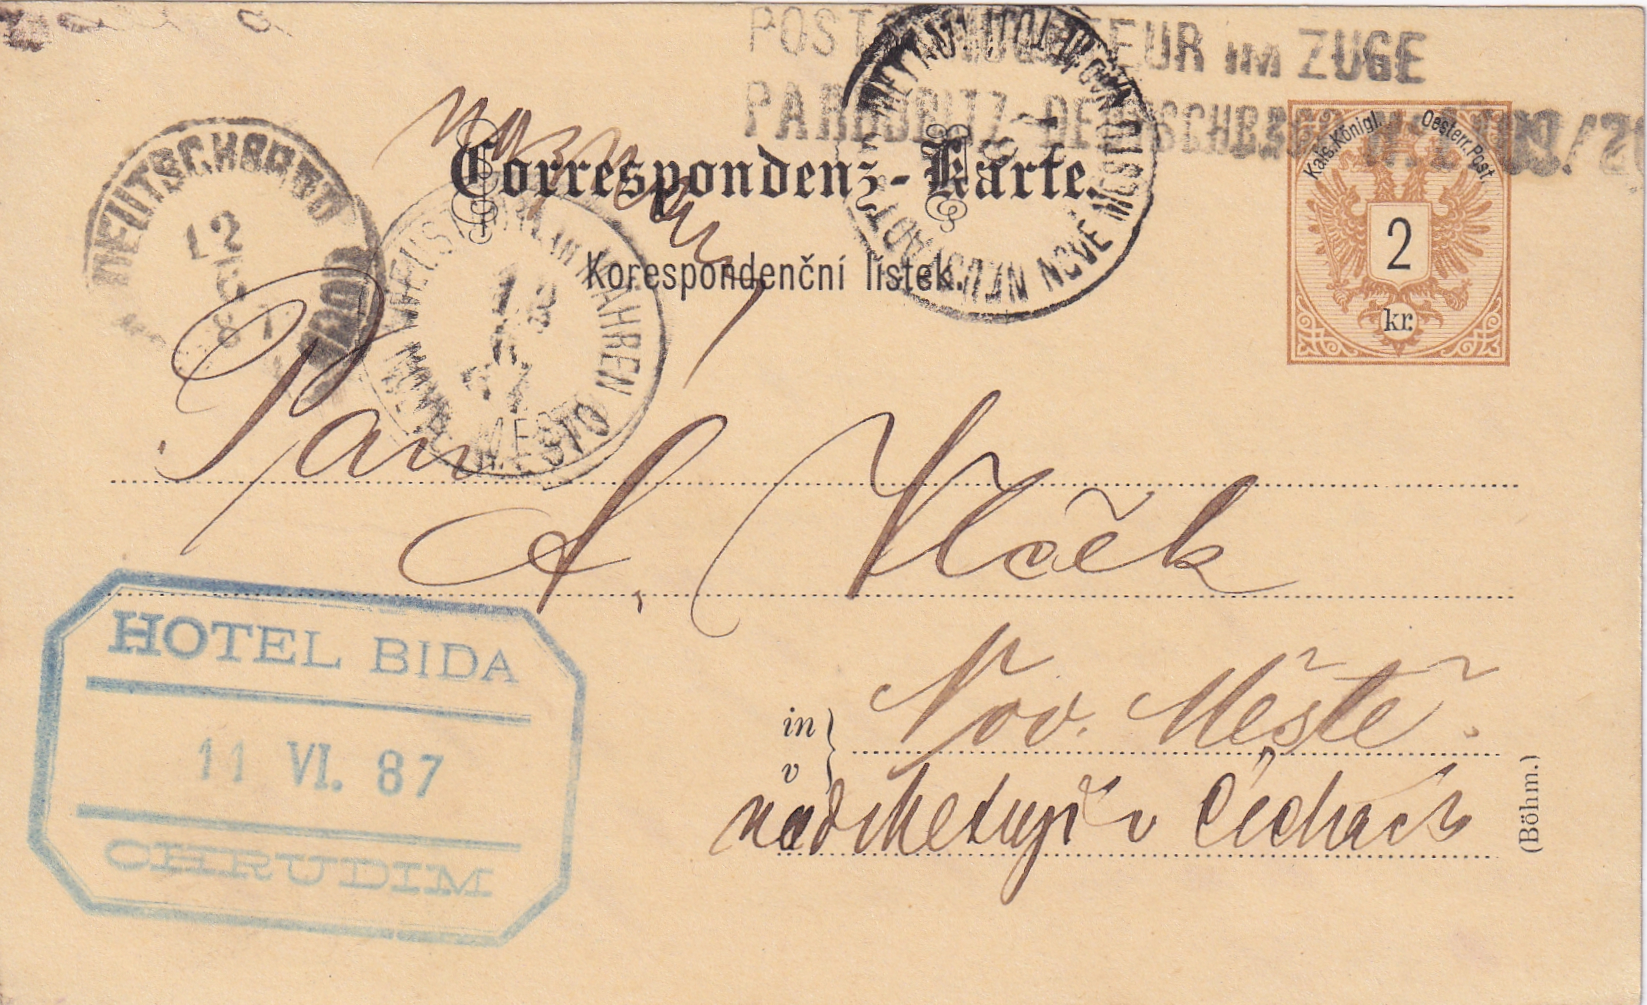 POST CONDUCTEUR IM ZUGE
PARDUBITZ-DEUTSCHBROD
Correspondenz-Karte.
Korespondenční lístek.
Kais. Königl. Oesterr. Post
2
kr.
DEUTSCHBROD
12
6
87
NEUSTADTL IN MÄHREN
MĚSTO
NEUSTADT
NOVÉ MĚSTO
Pan
A. Vlček
in
v
Nov. Městě.
nad Metují v Čechách
(Böhm.)
HOTEL BIDA
11 VI. 87
CHRUDIM